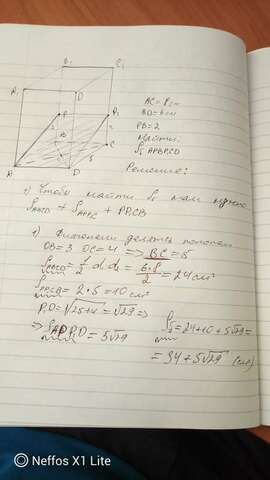 B₁ C₁
A₁ D
P P₁
B C
A D
5
AC = 8см
BD = 6см
PB = 2
Найти:
S APBP₁CD
Решение:
1) Чтобы найти S нам нужно
S ABCD + S
+ PP₁CB
1) Диагонали делятся пополам
OB = 3 OC = 4 ⇒ BC = 5
S ABCD = 1/2 d d₂ = 6·8/2 = 24 см²
= 2·5 = 10 см²
P₁D = √25+4 = √29 ⇒
⇒ S AP P₁D = 5√29
S = 24+10+5√29 =
= 34 + 5√29 (см)
Neffos X1 Lite